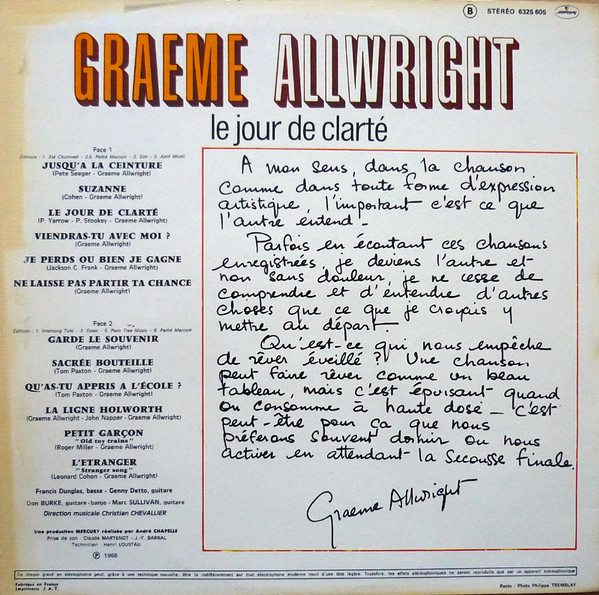 B STÉRÉO 6325 605
mercury
GRAEME ALLWRIGHT
le jour de clarté
Face 1
Editions : 1. Sté Chanwell - 2.6. Pathé Marconi - 3. Gim - 5. April Music
JUSQU'A LA CEINTURE
(Pete Seeger - Graeme Allwright)
SUZANNE
(Cohen - Graeme Allwright)
LE JOUR DE CLARTÉ
(P. Yarrow - P. Stookey - Graeme Allwright)
VIENDRAS-TU AVEC MOI ?
(Graeme Allwright)
JE PERDS OU BIEN JE GAGNE
(Jackson C. Frank - Graeme Allwright)
NE LAISSE PAS PARTIR TA CHANCE
(Graeme Allwright)
Face 2
GARDE LE SOUVENIR
(Graeme Allwright)
SACRÉE BOUTEILLE
(Tom Paxton - Graeme Allwright)
QU'AS-TU APPRIS A L'ÉCOLE ?
(Tom Paxton - Graeme Allwright)
LA LIGNE HOLWORTH
(Graeme Allwright - John Napper - Graeme Allwright)
PETIT GARÇON
"Old toy trains"
(Roger Miller - Graeme Allwright)
L'ETRANGER
"Stranger song"
(Leonard Cohen - Graeme Allwright)
Francis Dunglas, basse - Genny Detto, guitare
Don BURKE, guitare-banjo - Marc SULLIVAN, guitare
Direction musicale Christian CHEVALLIER
Une production MERCURY réalisée par André CHAPELLE
Prise de son : Claude MARTENOT - J.-Y. BARRAL
Technicien : Henri LOUSTAU
℗ 1968
A mon sens, dans la chanson
comme dans toute forme d'expression
artistique, l'important c'est ce que
l'autre entend -
Parfois en écoutant ces chansons
enregistrées, je deviens l'autre et
non sans douleur, je ne cesse de
comprendre et d'entendre d'autres
choses que ce que je croyais y
mettre au départ.
Qu'est-ce qui nous empêche
de rêver éveillé ? Une chanson
peut faire rêver comme un beau
tableau, mais c'est épuisant quand
on consomme à haute dose - C'est
peut-être pour ça que nous
préférons souvent dormir ou nous
activer en attendant la Secousse finale.
Graeme Allwright
Ce disque gravé en stéréophonie peut, grâce à une technique nouvelle, être lu indifféremment sur tout électrophone moderne muni d'une tête légère. Toutefois, les effets stéréophoniques ne seront reproduits que par un appareil stéréophonique.
Fabriqué en France
Imprimerie J.A.T.
Recto : Photo Philippe TREMBLAY